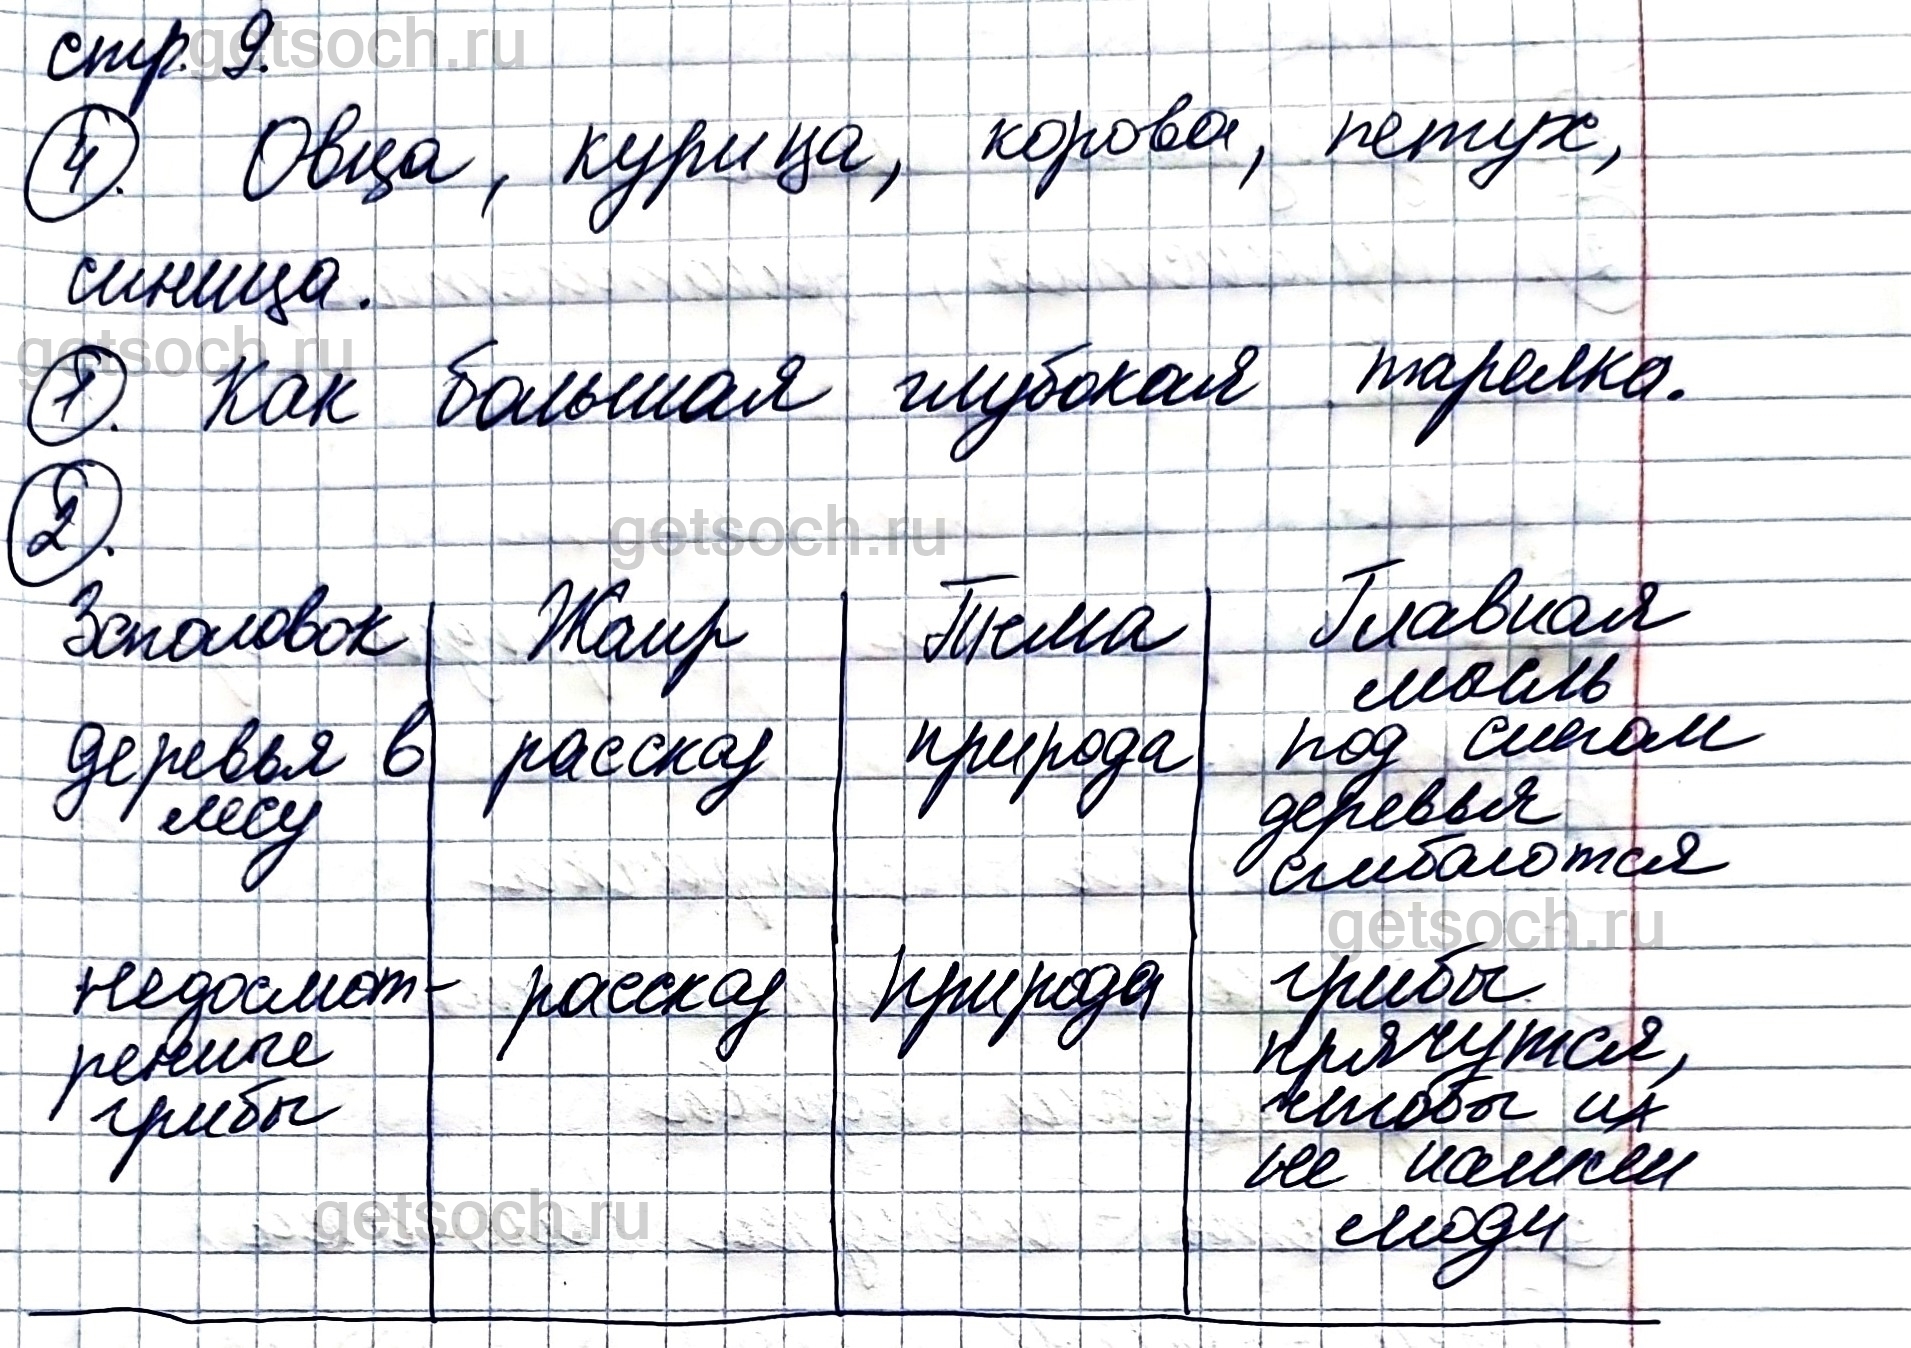 стр. 9.
4. Овца, курица, корова, петух,
синица.
1. Как большая глубокая тарелка.
2.
Заголовок Жанр Тема Главная
мысль
деревья в рассказ природа под снегом
лесу деревья
сгибаются
недосмот- рассказ природа грибы
ренные прячутся,
грибы чтобы их
не нашли
люди
getsoch.ru
getsoch.ru
getsoch.ru
getsoch.ru
getsoch.ru